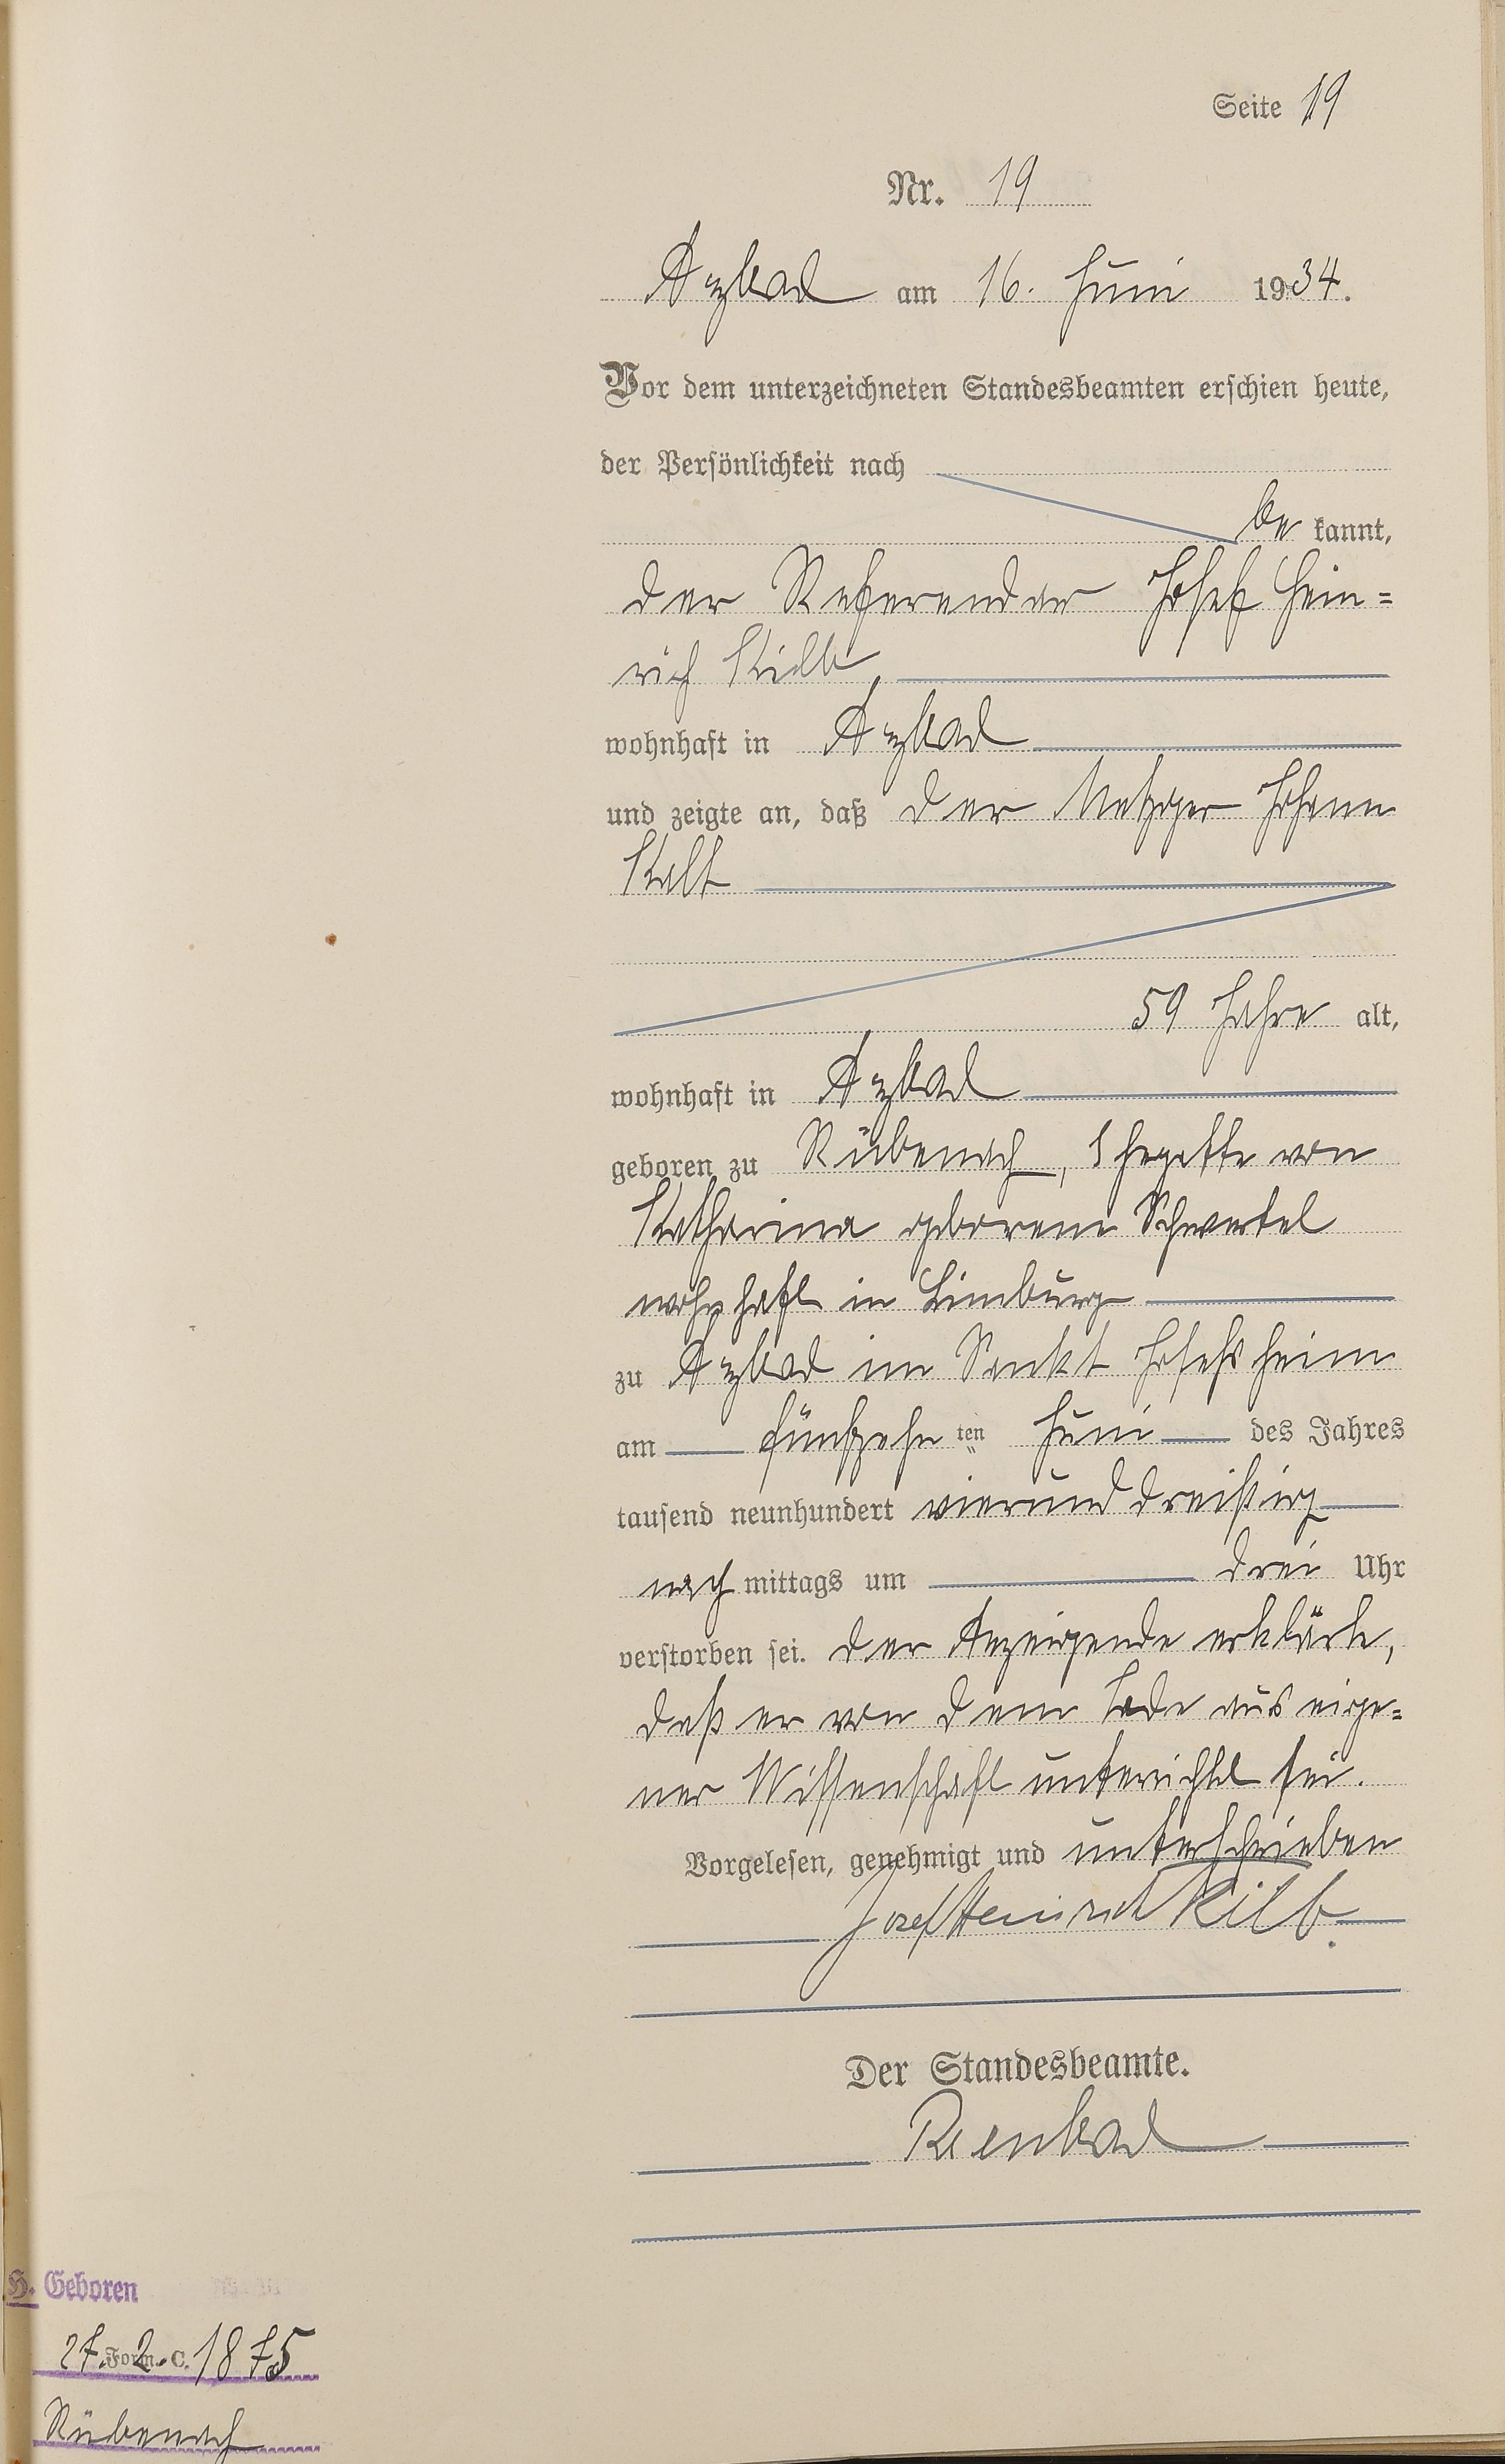 Seite 19
Nr. 19
am 16. Juni 1934.
Vor dem unterzeichneten Standesbeamten erschien heute,
der Persönlichkeit nach
be kannt,
der Referendar Josef Hein=
rich Kilb,
wohnhaft in
und zeigte an, daß der Metzger Johann
Kalt
59 Jahre alt,
wohnhaft in
geboren zu Rübenach, Ehegatte von
Katharina geborene Schwertel
wohnhaft in Limburg
zu im Sankt Josefsheim
am fünfzehnten Juni des Jahres
tausend neunhundert vierunddreißig
nach mittags um drei Uhr
verstorben sei. Der Anzeigende erklärte,
daß er von dem Tode aus eige=
ner Wissenschaft unterichtet sei.
Vorgelesen, genehmigt und unterschrieben
Josef Heinrich Kilb.
Der Standesbeamte.
H. Geboren
Form. C.
27. 2. 1875
Rübenach